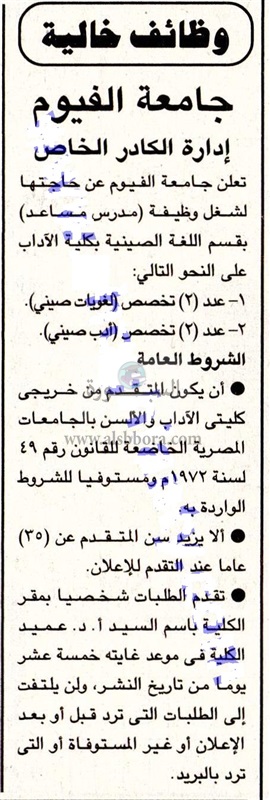 وظائف خالية
جامعة الفيوم
إدارة الكادر الخاص
تعلن جامعة الفيوم عن حاجتها
لشغل وظيفة (مدرس مساعد)
بقسم اللغة الصينية بكلية الآداب
على النحو التالي:
١- عدد (٢) تخصص (لغويات صيني).
٢- عدد (٢) تخصص (أدب صيني).
الشروط العامة
● أن يكون المتقدم من خريجى
كليتى الآداب والألسن بالجامعات
www.alsbbora.com
المصرية الخاضعة للقانون رقم ٤٩
لسنة ١٩٧٢م ومستوفيا للشروط
الواردة به.
● ألا يزيد سن المتقدم عن (٣٥)
عاما عند التقدم للإعلان.
● تقدم الطلبات شخصيا بمقر
الكلية باسم السيد أ. د. عميد
الكلية فى موعد غايته خمسة عشر
يوما من تاريخ النشر، ولن يلتفت
إلى الطلبات التى ترد قبل أو بعد
الإعلان أو غير المستوفاة أو التى
ترد بالبريد.